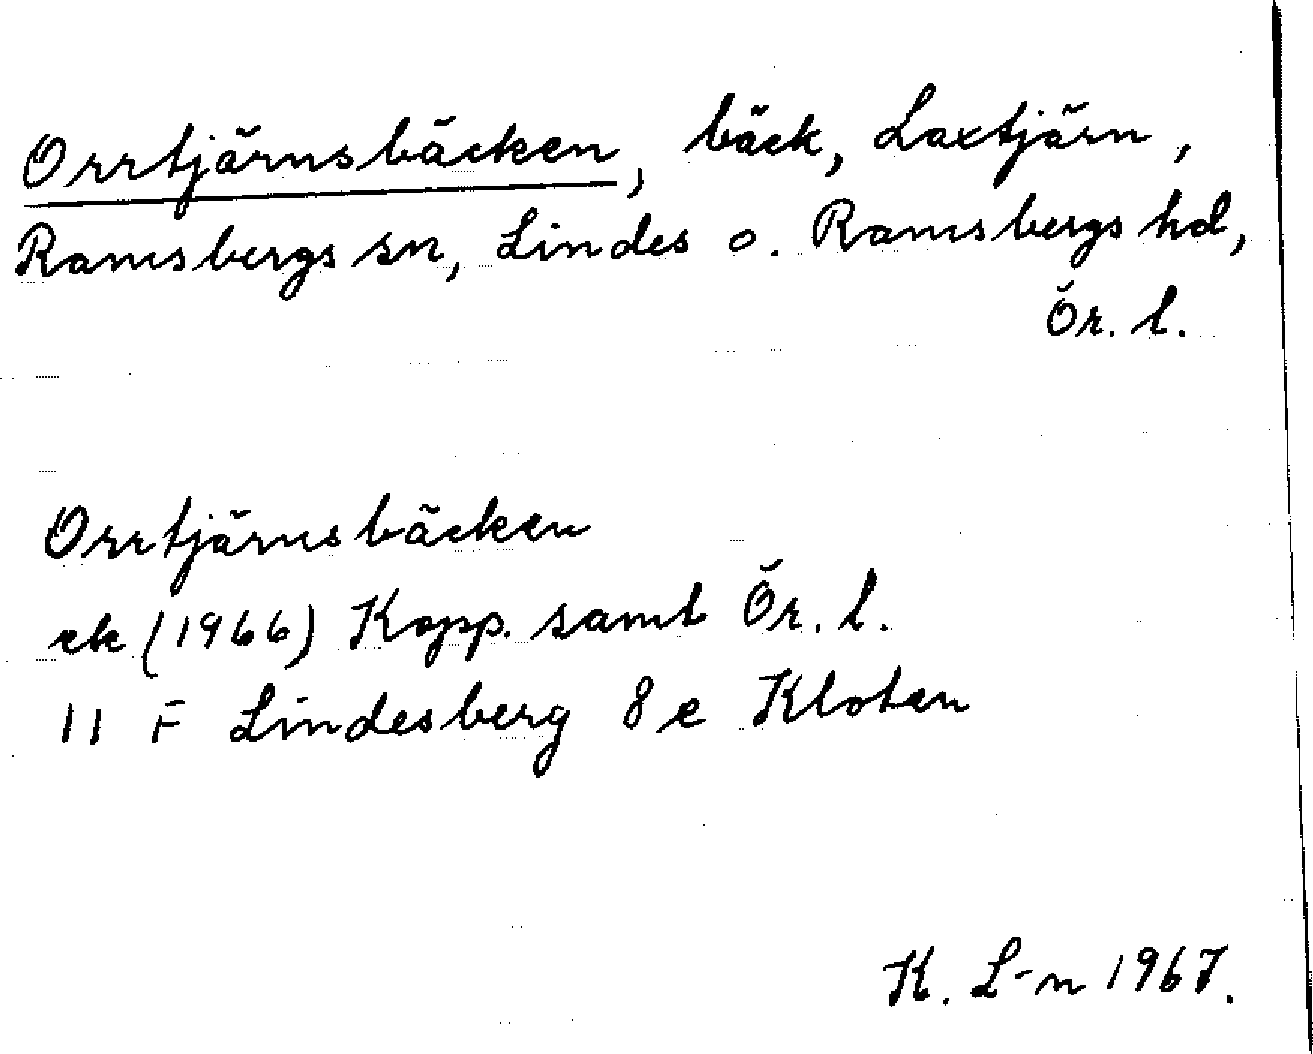 Orrtjärnsbäcken, bäck, Laxtjärn,
Ramsbergs sn, Lindes o. Ramsbergs hd,
Ör. l.
Orrtjärnsbäcken
ek (1966) Kopp. samt Ör. l.
11 F Lindesberg 8 e Kloten
K. L-n 1967.